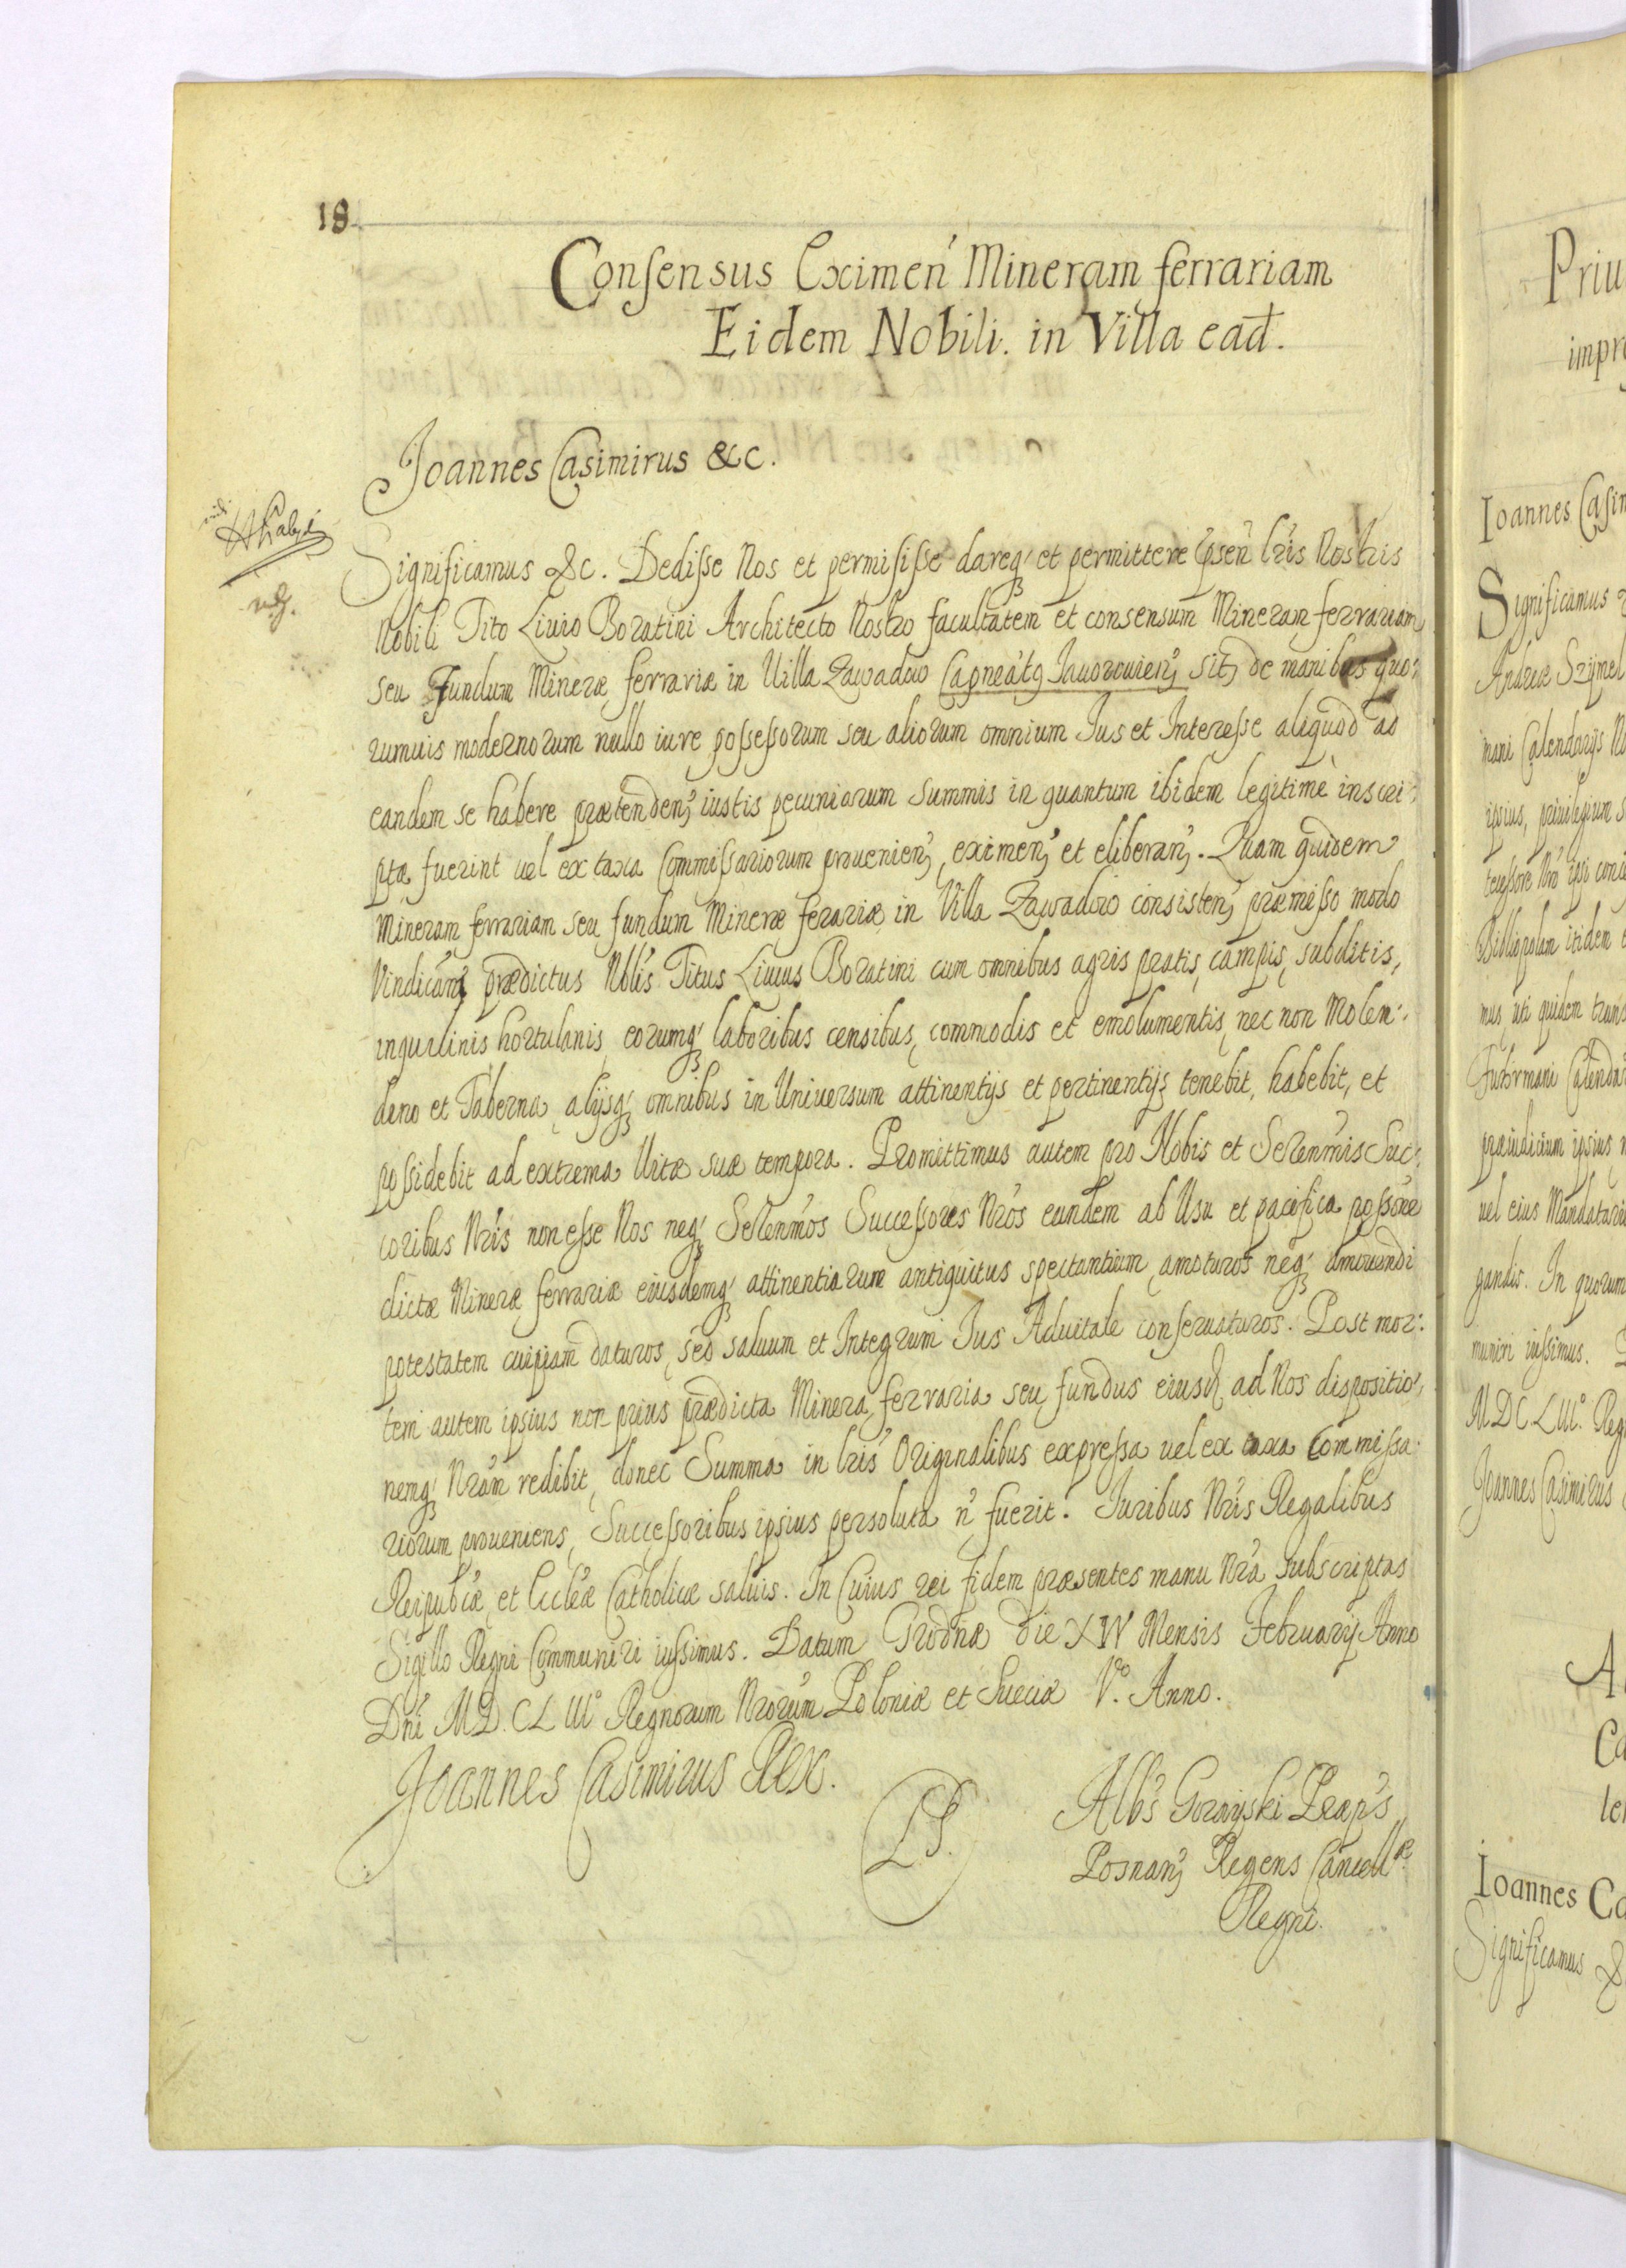 18
Consensus Eximen̄ Mineram ferrariam
Eidem Nobili. in Villa ead.
Joannes Casimirus &c.
Significamus &c. Dedisse Nos et permisisse dareq; et permittere pr̃sen̄ lr̃is Nostris
Nobili Tito Liuio Boratini Architecto Nostro facultatem et consensum Mineram ferrariam
seu Fundum Mineræ ferrariæ in Uilla Zawadow Capneatq Jauorouien; sit; de manibus quo:
rumuis modernorum nullo iure possessorum seu aliorum omnium Jus et Interesse aliquod ad
eandem se habere prætenden; iustis pecuniarum summis in quantum ibidem legitimè inscri:
ptæ fuerint uel ex taxa Commissariorum prouenien; eximen; et eliberan;. Quam quidem
Mineram ferrariam seu fundum Mineræ feraria in Villa Zawadow consisten; præmisso modo
Vindicam; prædictus Nob̃lis Titus Liuius Boratini cum omnibus agris pratis, campis, subditis,
inquilinis hortulanis, eorumq; laboribus censibus, commodis et emolumentis, nec non Molen:
dino et Taberna, alÿsq; omnibus in Uniuersum attinentÿs et pertinentÿs tenebit, habebit, et
possidebit ad extrema Uitæ suæ tempora. Promittimus autem pro Nobis et Seren̄mis Suc:
coribus Nr̃is non esse Nos neq; Seren̄mos Successores Nr̃os eundem ab Usu et pacifica possõne
dictæ Mineræ ferrariæ eiusdemq; attinentiarum antiquitus spectantium, amoturos neq; amouendi
potestatem cuipiam daturos, sed saluum et Integrum Jus Aduitale conseruaturos. Post mor:
tem autem ipsius non prius prædicta Minera ferraria seu fundus eiusd, ad Nos dispositio:
nemq; Nr̃am redibit, donec Summa in lr̃is Originalibus expressa uel ex taxa Commissa:
riorum proueniens, Successoribus ipsius persoluta n̄ fuerit. Juribus Nr̃is Regalibus
Reipub̃cæ, et Eccl̃eæ Catholicæ saluis. In Cuius rei fidem præsentes manu Nr̃a subscriptas
Sigillo Regni Communiri iussimus. Datum Grodnæ die XIV Mensis Februarÿ Anno
Dn̄i M.D.C L III° Regnorum Nr̃orum Poloniæ et Sueciæ V.° Anno.
Joannes Casimirus Rex.
L.S.
Alb̃s Gorayski Præp̃s
Posnan; Regens Cancell.æ
Regni.
Priu
impr
Joannes Casim
Significamus
Andreæ Szymel
mani Calendarÿs No
ipsius, priuilegium s
tecessore Nr̃o ipsi conce
Bibliopolam itidem
mus, uti quidem trans
Futormani Calenda
præiudicium ipsius
uel eius Mandatari
gandis. In quorum
muniri iussimus.
M D C L III° Reg
Joannes Casimirus
A
Ca
le
Joannes Ca
Significamus &